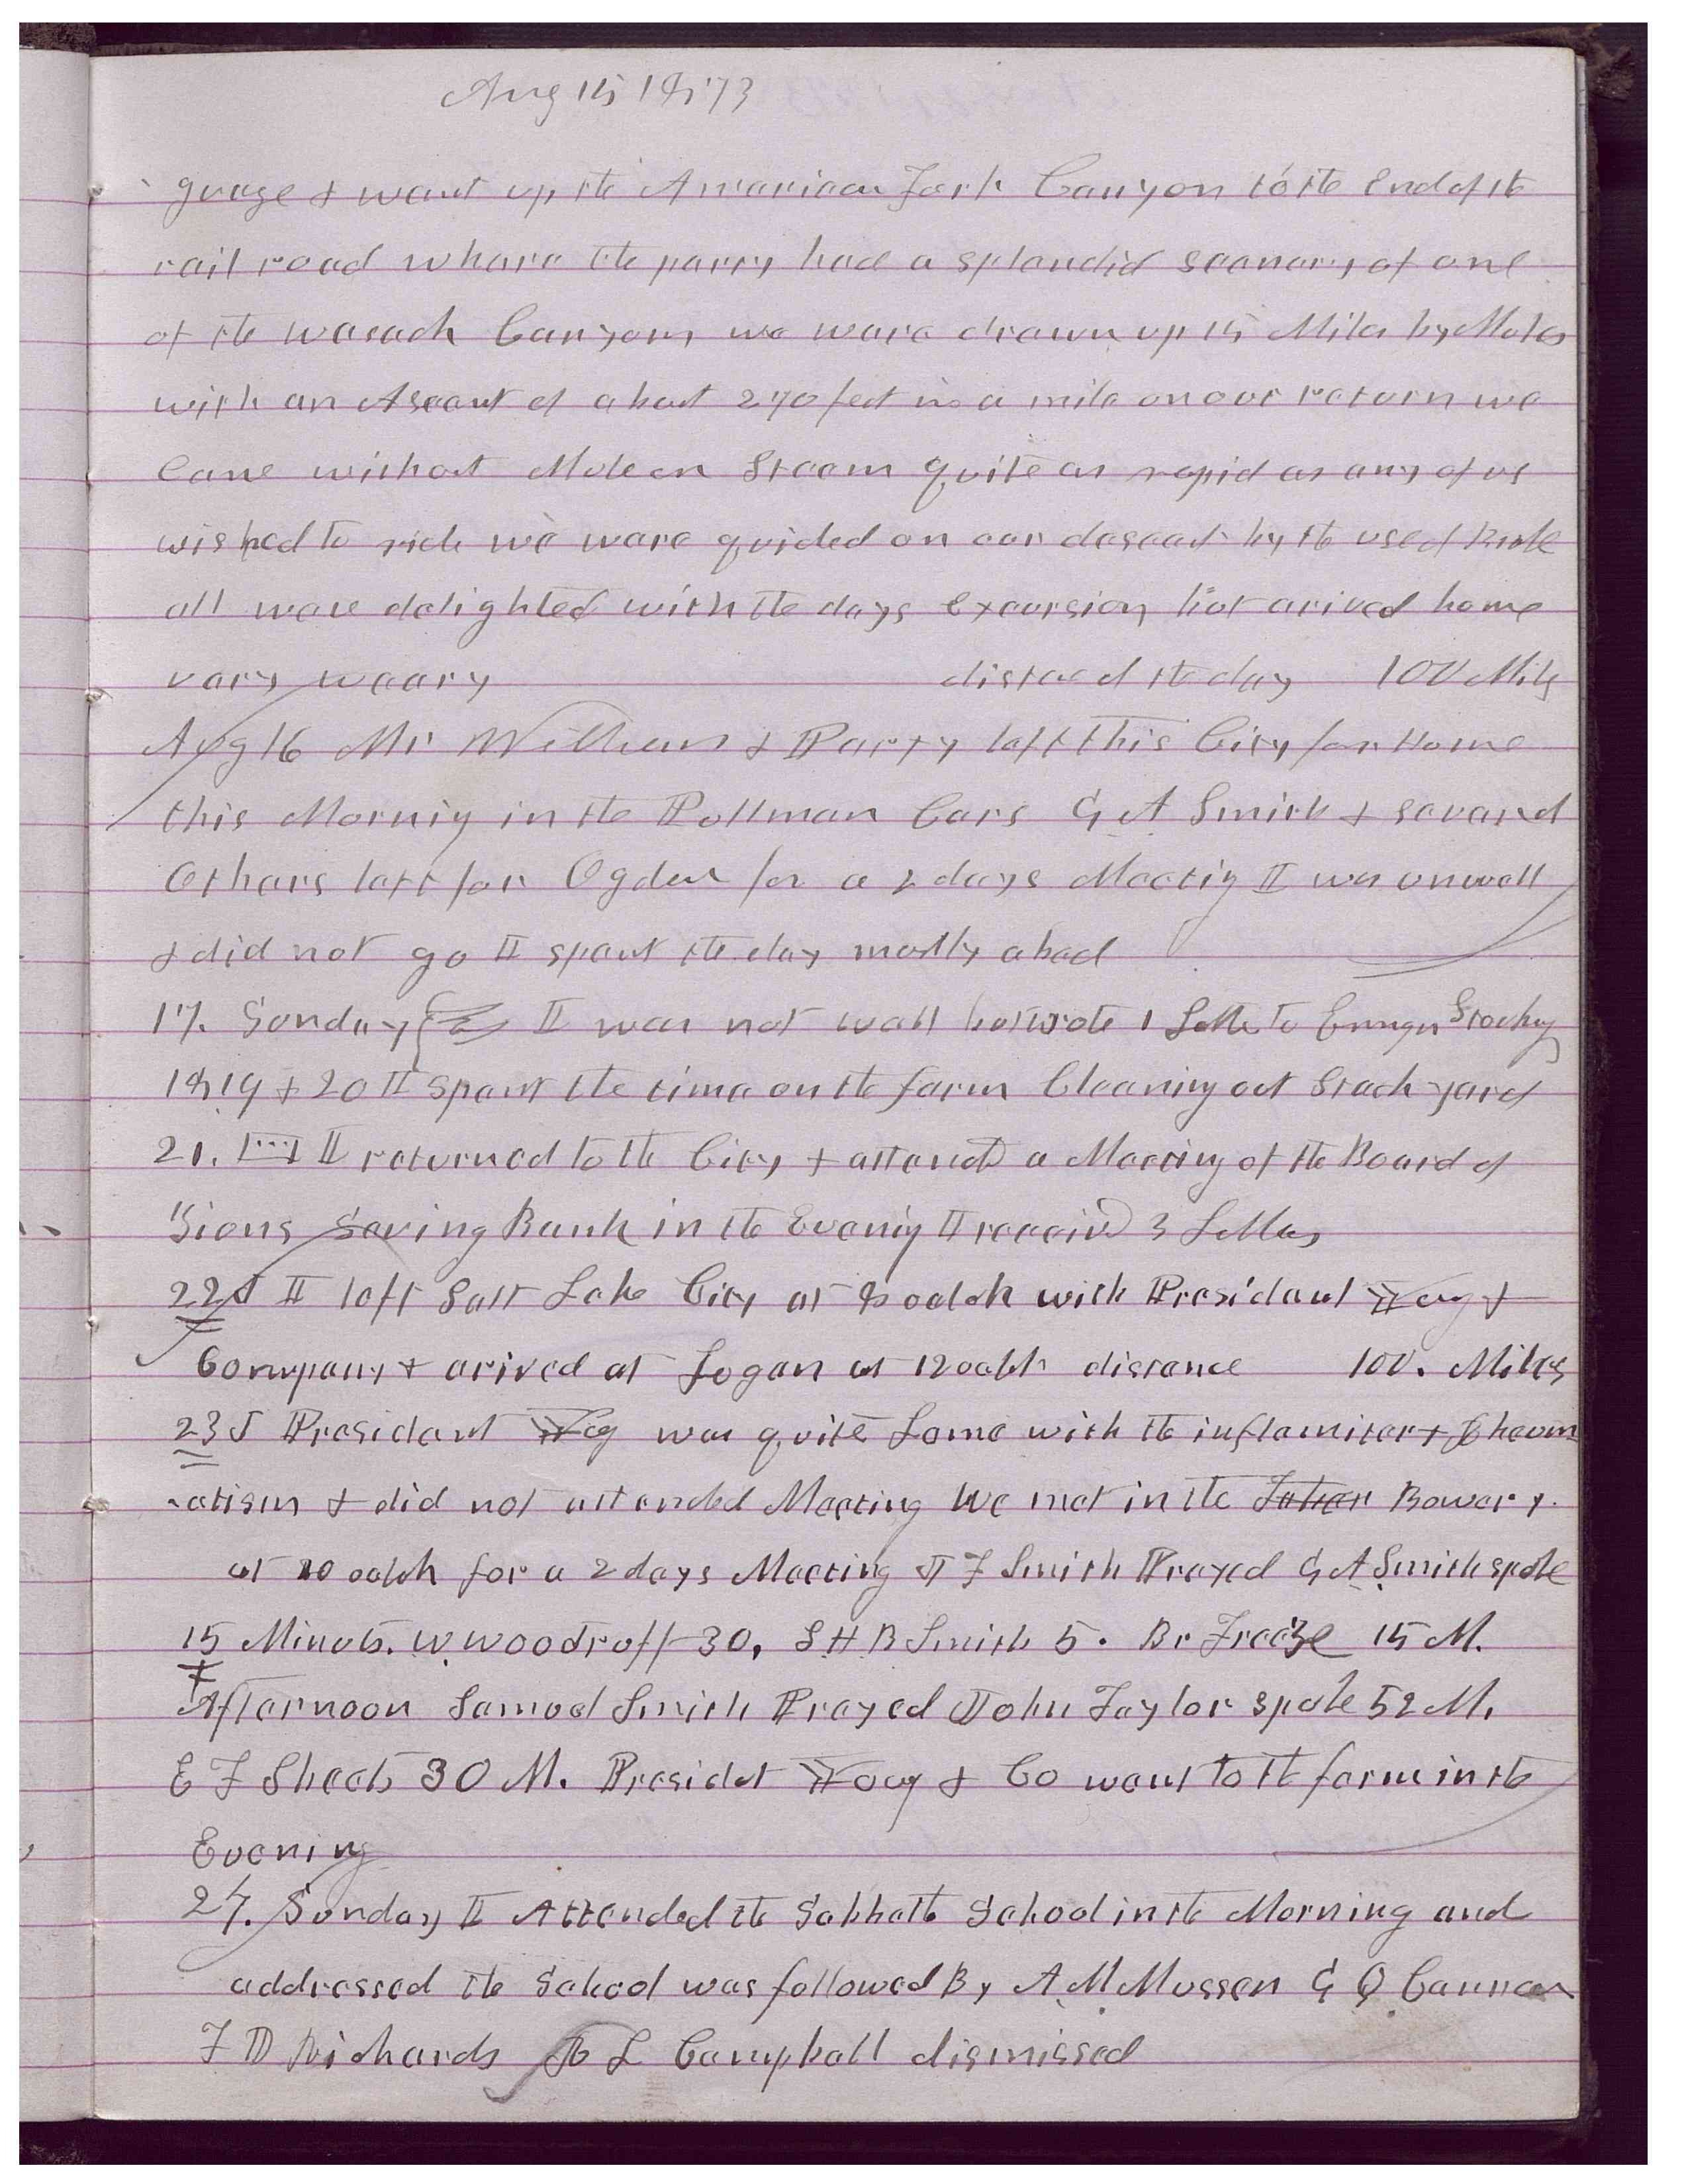 Aug 15 1873
guage & went up the American Fork Canyon to the End of the
rail road where the party had a splendid scenery of one
of the wasach Canyons we ware drawn up 15 Miles by Mules
with an Ascent of about 270 feet in a mile on our return we
Came without Mule or Steam quite as rapid as any of us
wished to ride we ware guided on our descent by the use of Brake
all ware delighted with the days Excursion but arived home
vary weary distance of the day 100 Miles
Aug 16 Mr & Party left this City for Home
this Morning in the Pullman Cars G A Smith & several
Others left for Ogden for a 2 days Meeting I was unwell
& did not go I spent the day mostly abed
17. Sunday I was not well but wrote 1 Letter to
18, 19 & 20 I spent the time on the farm Cleaning out Stack yard
21. I returned to the City & attend a Meeting of the Board of
Zions Saving Bank in the Evenig I receivd 3 Letters
22d I left Salt Lake City at 8 oclok with President Young &
Company & arived at Logan at 12 oclok distance 100. Miles
23d President Yog was quite Lame with the inflamitory Rheum
-atism & did not attended Meeting We met in the Bowery.
at 10 oclok for a 2 days Meeting J F Smith Prayed G A Smith spoke
15 Minuts. W. Woodruff 30, S H B Smith 5. Br Freeze 15 M.
Afternoon Samuel Smith Prayed John Taylor spoke 52 M.
E F Sheets 30 M. Presidet Young & Co went to the farm in the
Evening
24. Sunday I Attended the Sabbath School in the Morning and
addressed the School was followed By A. M Musser G Q Cannon
F D Richards R L Campbell dismissed